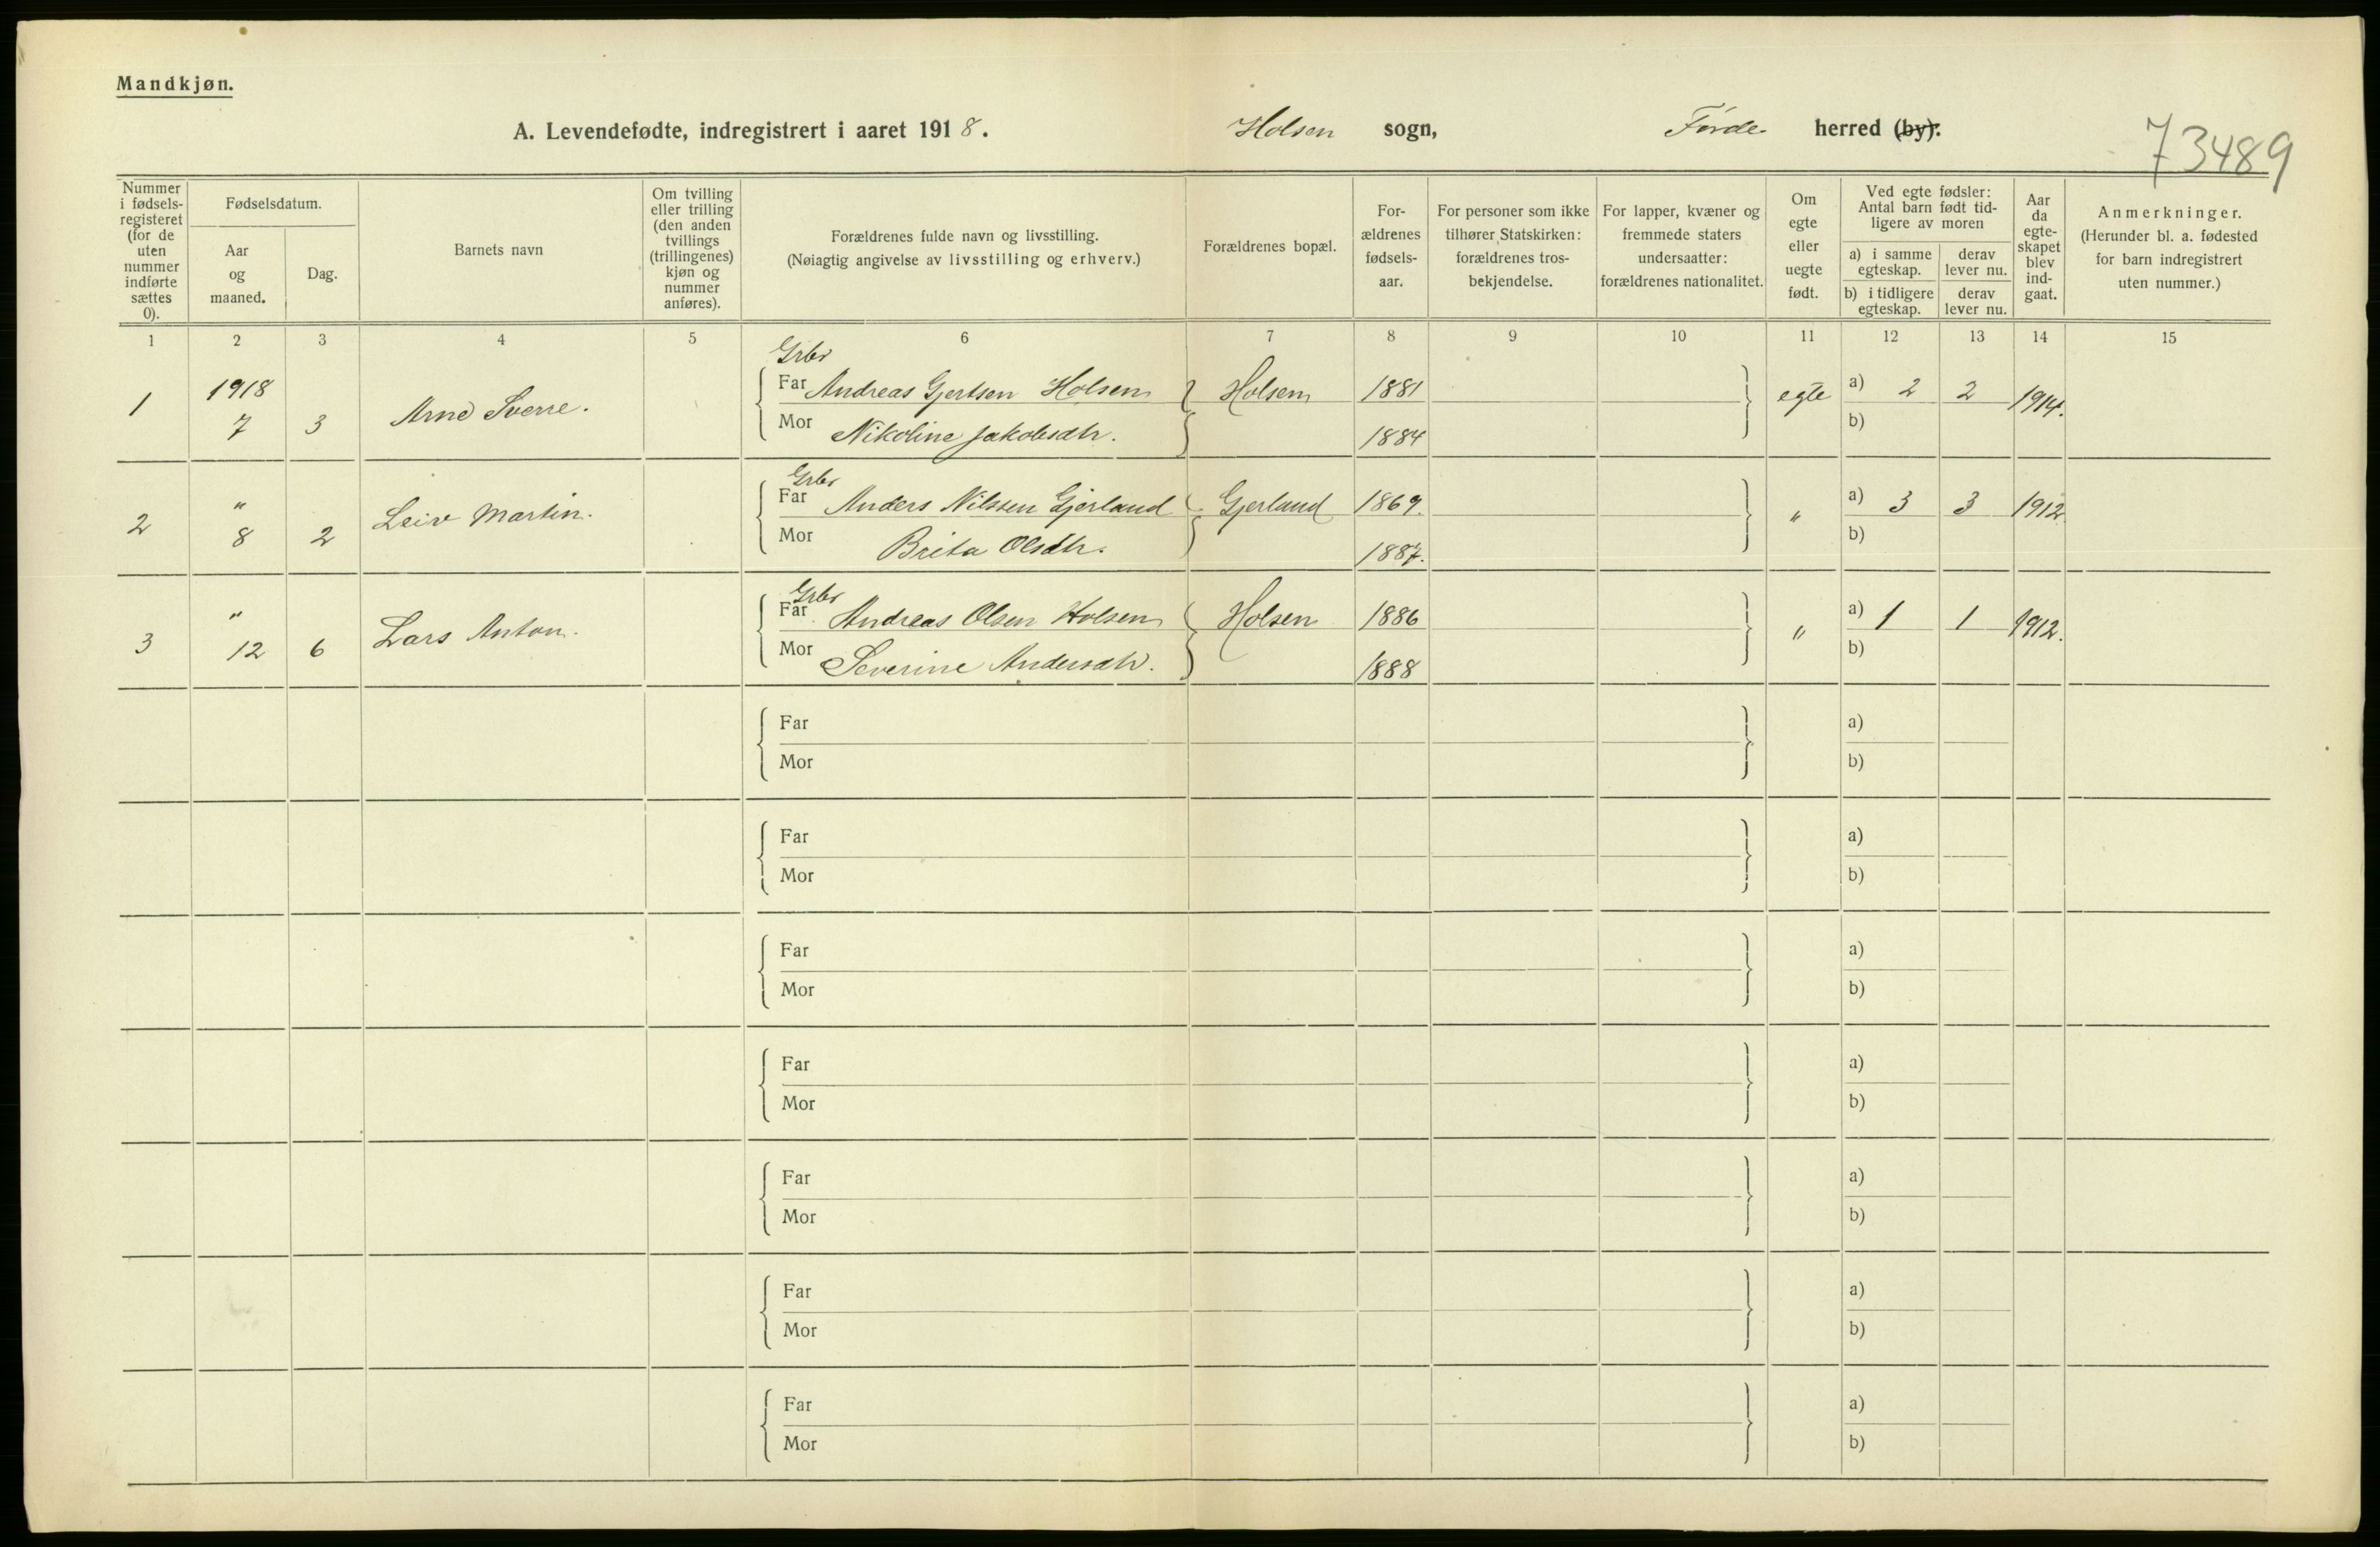 Mandkjøn.
A. Levendefødte, indregistrert i aaret 1918. Holsen sogn, Førde herred (by).
73489
Nummer i fødsels-registeret (for de uten nummer indførte sættes 0).
Fødselsdatum.
Aar og maaned.
Dag.
Barnets navn
Om tvilling eller trilling (den anden tvillings (trillingenes) kjøn og nummer anføres).
Forældrenes fulde navn og livsstilling.
(Nøiagtig angivelse av livsstilling og erhverv.)
Forældrenes bopæl.
For-ældrenes fødsels-aar.
For personer som ikke tilhører Statskirken: forældrenes tros-bekjendelse.
For lapper, kvæner og fremmede staters undersaatter: forældrenes nationalitet.
Om egte eller uegte født.
Ved egte fødsler: Antal barn født tid-ligere av moren
a) i samme egteskap.
derav lever nu.
b) i tidligere egteskap.
derav lever nu.
Aar da egte-skapet blev ind-gaat.
Anmerkninger.
(Herunder bl. a. fødested for barn indregistrert uten nummer.)
1 2 3 4 5 6 7 8 9 10 11 12 13 14 15
Grbr
1 1918 7 3 Arne Sverre. Far Andreas Gjertsen Holsen Holsen 1881 egte a) 2 2 1914.
Mor Nikoline Jakobsdtr. 1884 b)
Grbr
2 " 8 2 Leiv Martin. Far Anders Nilssen Gjerland Gjerland 1869. " a) 3 3 1912.
Mor Brita Olsdtr. 1887. b)
Grbr
3 " 12 6 Lars Anton. Far Andreas Olsen Holsen Holsen 1886 " a) 1 1 1912.
Mor Severine Andersdtr. 1888 b)
Far a)
Mor b)
Far a)
Mor b)
Far a)
Mor b)
Far a)
Mor b)
Far a)
Mor b)
Far a)
Mor b)
Far a)
Mor b)